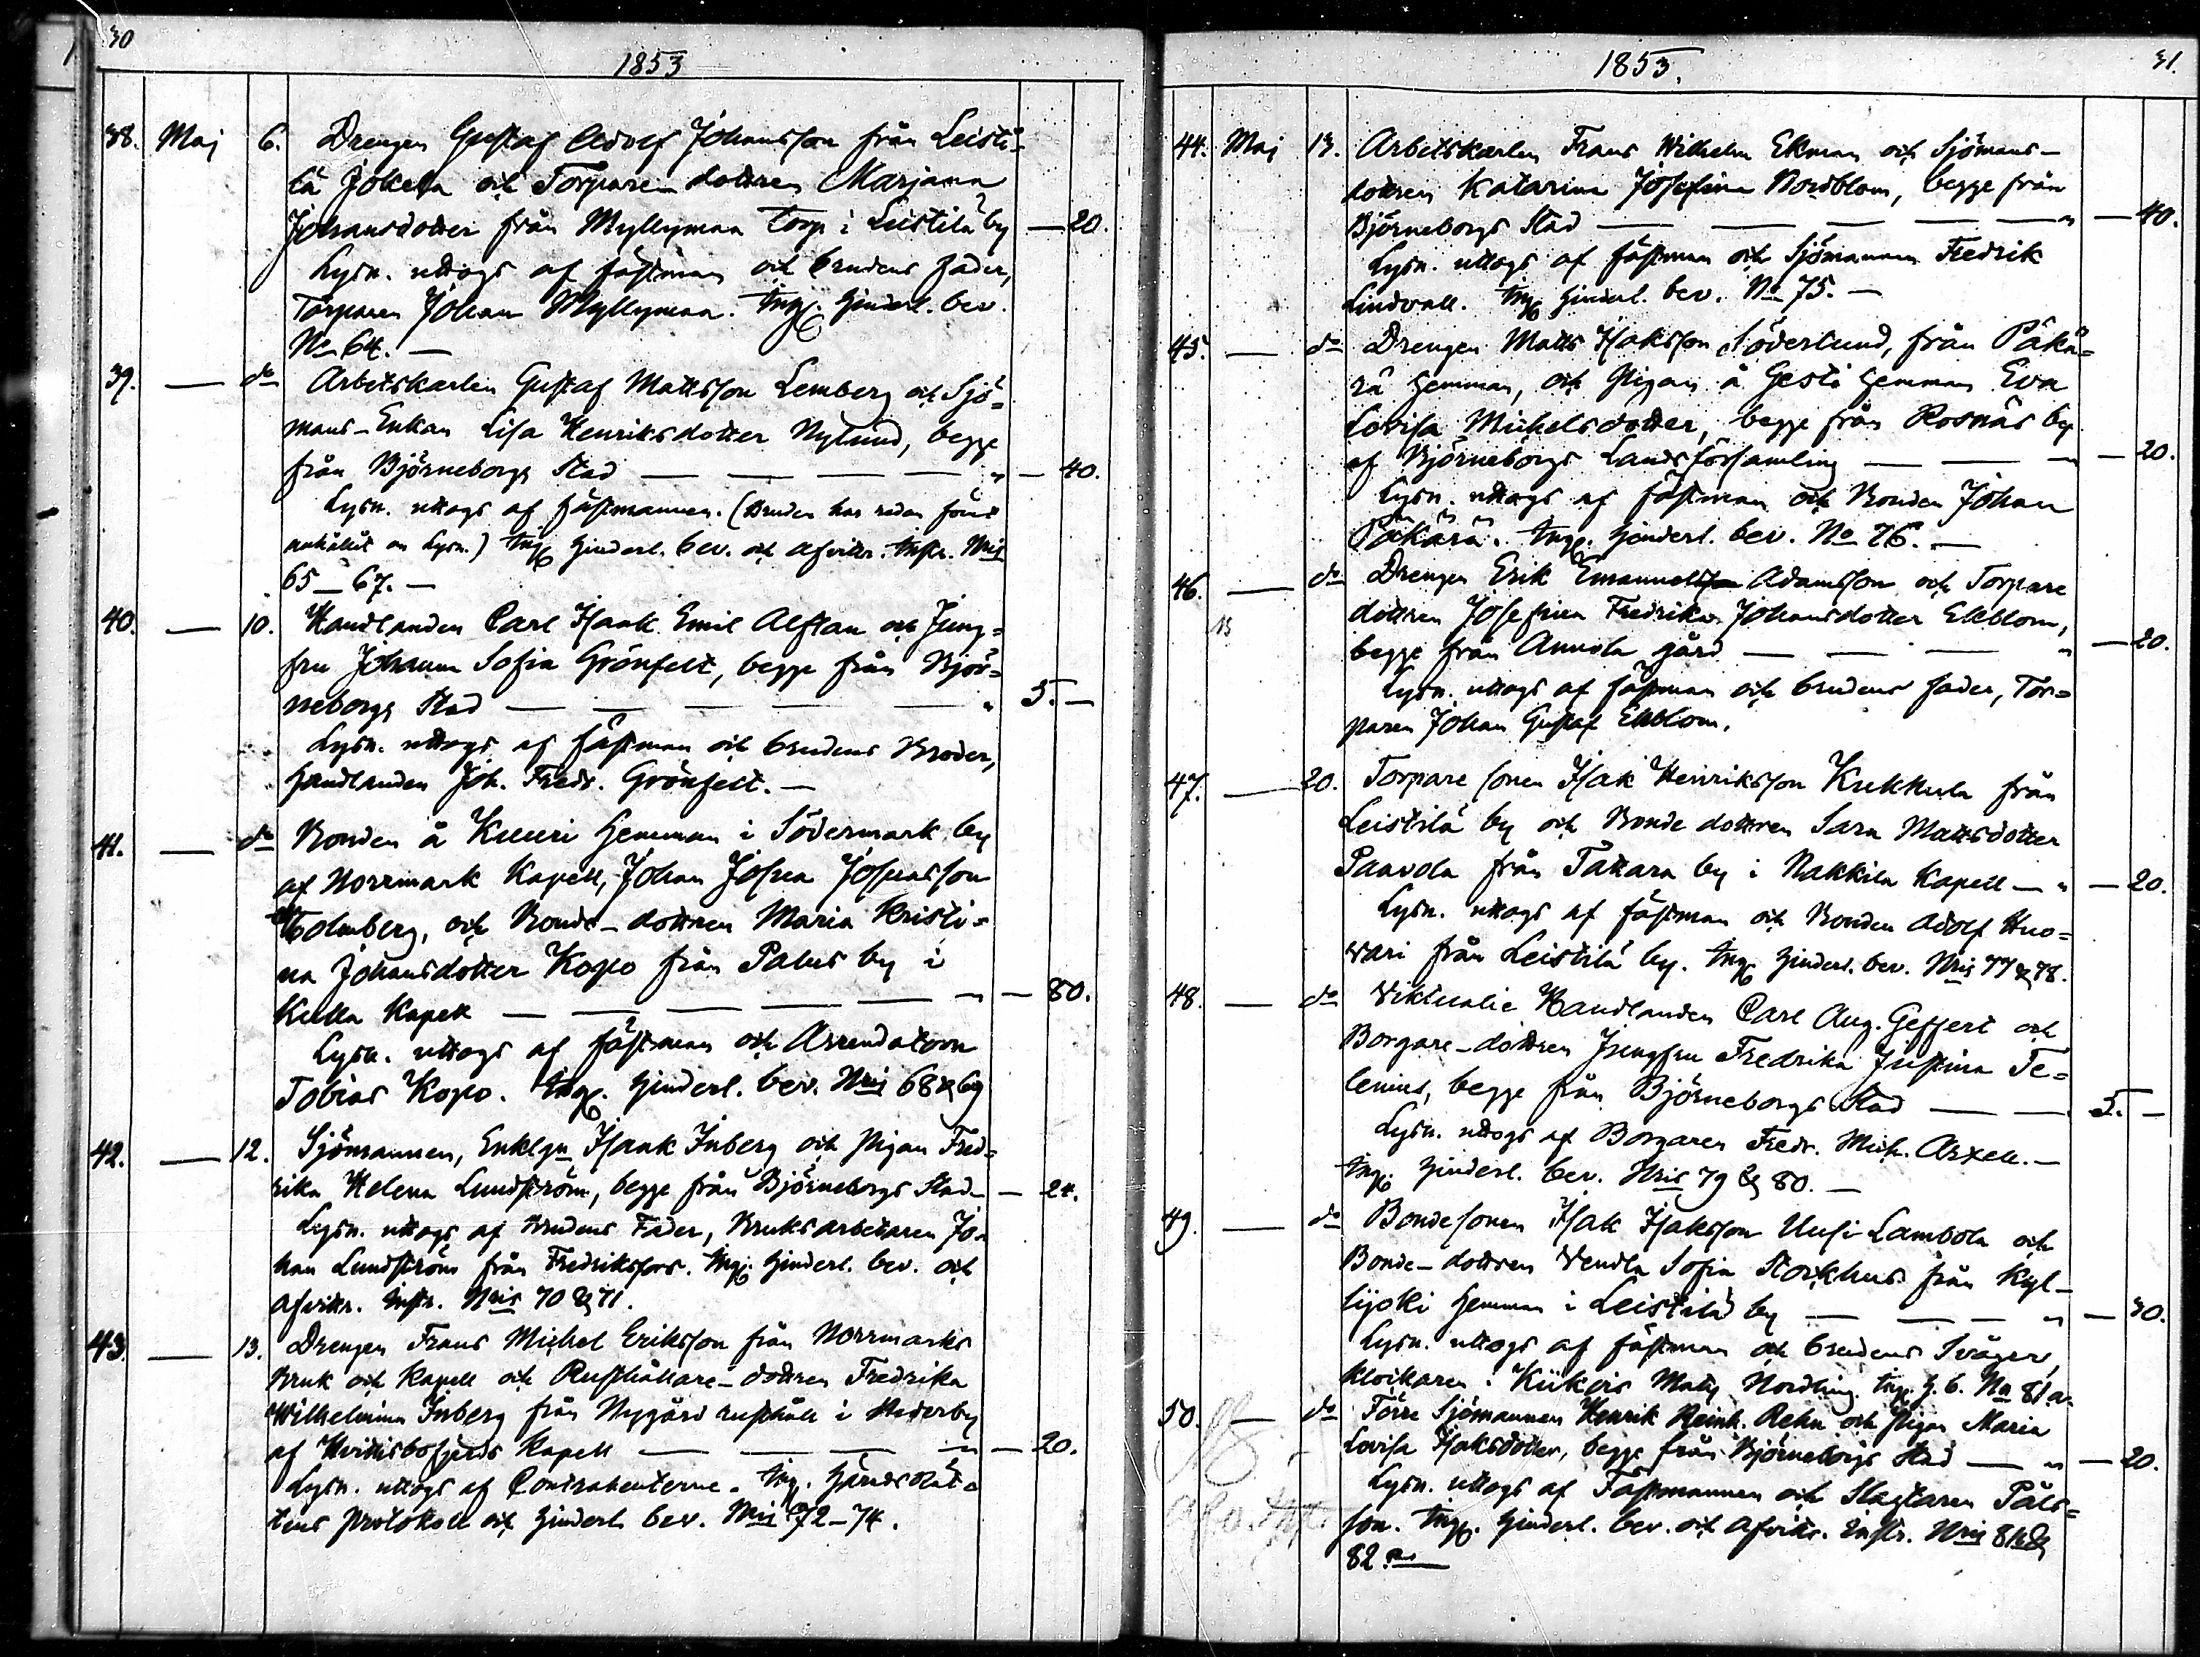 30
1853
38. Maj 6. Drengen Gustaf Adolf Johansson från Leisti-
lä Jokela och Torpare-dottren Marjana
Johansdotter från Myllymaa torp i Leistilä by — 20.
Lysn. uttogs af fästman och brudens fader,
Torparen Johan Myllymaa. Ing. hinderl. bev.
No 64. —
39. — do Arbetskarlen Gustaf Mattsson Lemberg och Sjö=
mans-Enkan Lisa Henriksdotter Nylund, begge
från Björneborgs Stad — — — " — 40.
Lysn. uttogs af fästmannen. (Bruden har redan förut
anhållit om Lysn.) Ing. hinderl. bev. och afvittr. instr. Nris
65–67. —
40. — 10. Handlanden Carl Isaak Emil Alftan och Jung=
fru Johanna Sofia Grönfelt, begge från Björ=
neborgs Stad — — — — " 5. —
Lysn. uttogs af fästman och brudens Broder,
handlanden Joh. Fredr. Grönfelt. —
41. — do Bonden å Kuuri Hemman i Södermark by
af Norrmark Kapell, Johan Josua Josuasson
Holmberg, och Bonde-dottren Maria Kristi=
na Johansdotter Kopo från Palus by i
Kulla Kapell — — — — " — 80.
Lysn. uttogs af fästman och Arrendatorn
Tobias Kopo. Ing. hinderl. bev. Nris 68 & 69
42. — 12. Sjömannen, Enklgn Isaak Inberg och Pigan Fred=
rika Helena Lundström, begge från Björneborgs Stad — — 24.
Lysn. uttogs af Brudens Fader, Bruksarbetaren Jo-
han Lundström från Fredriksfors. Ing. hinderl. bev. och
afvittr. instr. Nris 70 & 71.
43. — 13. Drengen Frans Michel Eriksson från Norrmarks
Bruk och Kapell och Rusthållare-dottren Fredrika
Wilhelmina Inberg från Nygård rusthåll i Stederby
af Hvittisbofjerds Kapell — — — " — 20.
Lysn. uttogs af Contrahenterne. Ing. häradsrät-
tens protokoll och hinderl. bev. Nris 72–74.
1853.
31.
44. Maj 13. Arbetskarlen Frans Wilhelm Ekman och Sjömans-
dottren Katarina Josefina Nordblom, begge från
Björneborgs Stad — — — — " — 40.
Lysn. uttogs af fästman och Sjömannen Fredrik
Lindvall. Ing. hinderl. bev. No 75. —
45. — do Drengen Matts Isaksson Söderlund, från Päkä=
rä hemman, och Pigan å Gesti hemman Eva
Lovisa Michelsdotter, begge från Rosnäs by
af Björneborgs Landsförsamling — — " — 20.
Lysn. uttogs af fästman och Bonden Johan
Päkärä. Ing. hinderl. bev. No 76. —
46. — do Drengen Erik Emanuel Adamsson och Torpare
dottren Josefina Fredrika Johansdotter Ekblom,
begge från Annola gård — — — " — 20.
Lysn. uttogs af fästman och brudens fader, Tor=
paren Johan Gustaf Ekblom.
47. — 20. Torpare sonen Isak Henriksson Kukkula från
Leistilä by och Bonde dottren Sara Mattsdotter
Paavola från Tattara by i Nakkila Kapell — " — 20.
Lysn. uttogs af fästman och Bonden Adolf Huo=
vari från Leistilä by. Ing. hinderl. bev. Nris 77 & 78.
48. — do Viktualie Handlanden Carl Aug. Geffert och
Borgare-dottren Jungfru Fredrika Justina Te=
lenius, begge från Björneborgs Stad — — 5. —
Lysn. uttogs af Borgaren Fredr. Mich. Arxell. —
Ing. hinderl. bev. Nris 79 & 80. —
49. — do Bondesonen Isak Isaksson Uusi-Lambola och
Bonde-dottren Vendla Sofia Storkhus från Kyl-
lijoki hemman i Leistilä by — — — " — 30.
Lysn. uttogs af fästman och brudens Svåger,
klockaren i Kiikois Matts Nordling. Ing. h. b. No 81a.
50. — do Förre Sjömannen Henrik Reinh. Rehn och Pigan Maria
Lovisa Isaksdotter, begge från Björneborgs Stad — " — 20.
Lysn. uttogs af Fästmannen och Slagtaren Påls=
son. Ing. hinderl. bev. och afvittr. instr. Nris 81b &
82. —